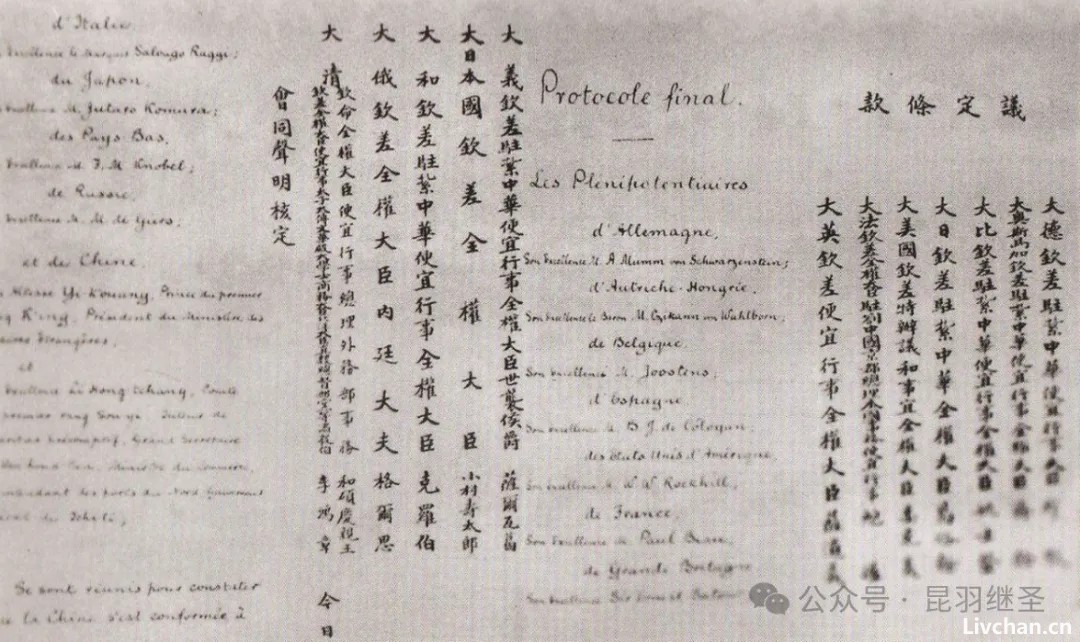 議定條款
大德欽差駐紮中華便宜行事大臣
大奧斯馬加欽差駐紮中華便宜行事全權大臣
大比欽差駐紮中華便宜行事全權大臣
大日欽差駐紮中華全權大臣
大美國欽差特辦議和事宜全權大臣
大法欽差全權大臣駐劄中國京都總理本國事務便宜行事
大英欽差便宜行事全權大臣薩
Protocole final.
Les Plénipotentiaires
d'Allemagne,
Son Excellence M. A. Mumm von Schwarzenstein;
d'Autriche-Hongrie,
Son Excellence le Baron M. Czikann von Wahlborn;
de Belgique,
Son Excellence M. Joostens;
d'Espagne,
Son Excellence M. B. J. de Cologan;
des États Unis d'Amérique,
Son Excellence M. W. W. Rockhill,
de France,
Son Excellence M. Paul Beau,
de Grande Bretagne
Son Excellence Sir Ernest Satow
大義欽差駐紮中華便宜行事全權大臣世襲侯爵薩爾瓦葛
大日本國欽差全權大臣小村壽太郎
大和欽差駐紮中華便宜行事全權大臣克羅伯
大俄欽差全權大臣內廷大夫格爾思
大清欽命全權大臣便宜行事總理外務部事務和碩慶親王
李鴻章
會同聲明核定
今日
d'Italie
Excellence le Marquis Salvago Raggi;
du Japon,
Excellence M. Jutaro Komura;
des Pays Bas,
Excellence M. F. M. Knobel;
de Russie,
Excellence M. M. de Giers,
et de Chine,
Altesse Yi-Kouang, Prince du premier
K'ing, Président du Ministère des
Étrangères,
et
Excellence Li Hong-tchang, Comte
premier rang Sou-yi, Tuteur de
héritier présomptif, Grand Secrétaire
Ministre du Commerce,
des ports du Nord, Gouverneur
du Tcheli,
Se sont réunis pour constater
que la Chine s'est conformée à
公众号 · 昆羽继圣
Livchan.cn